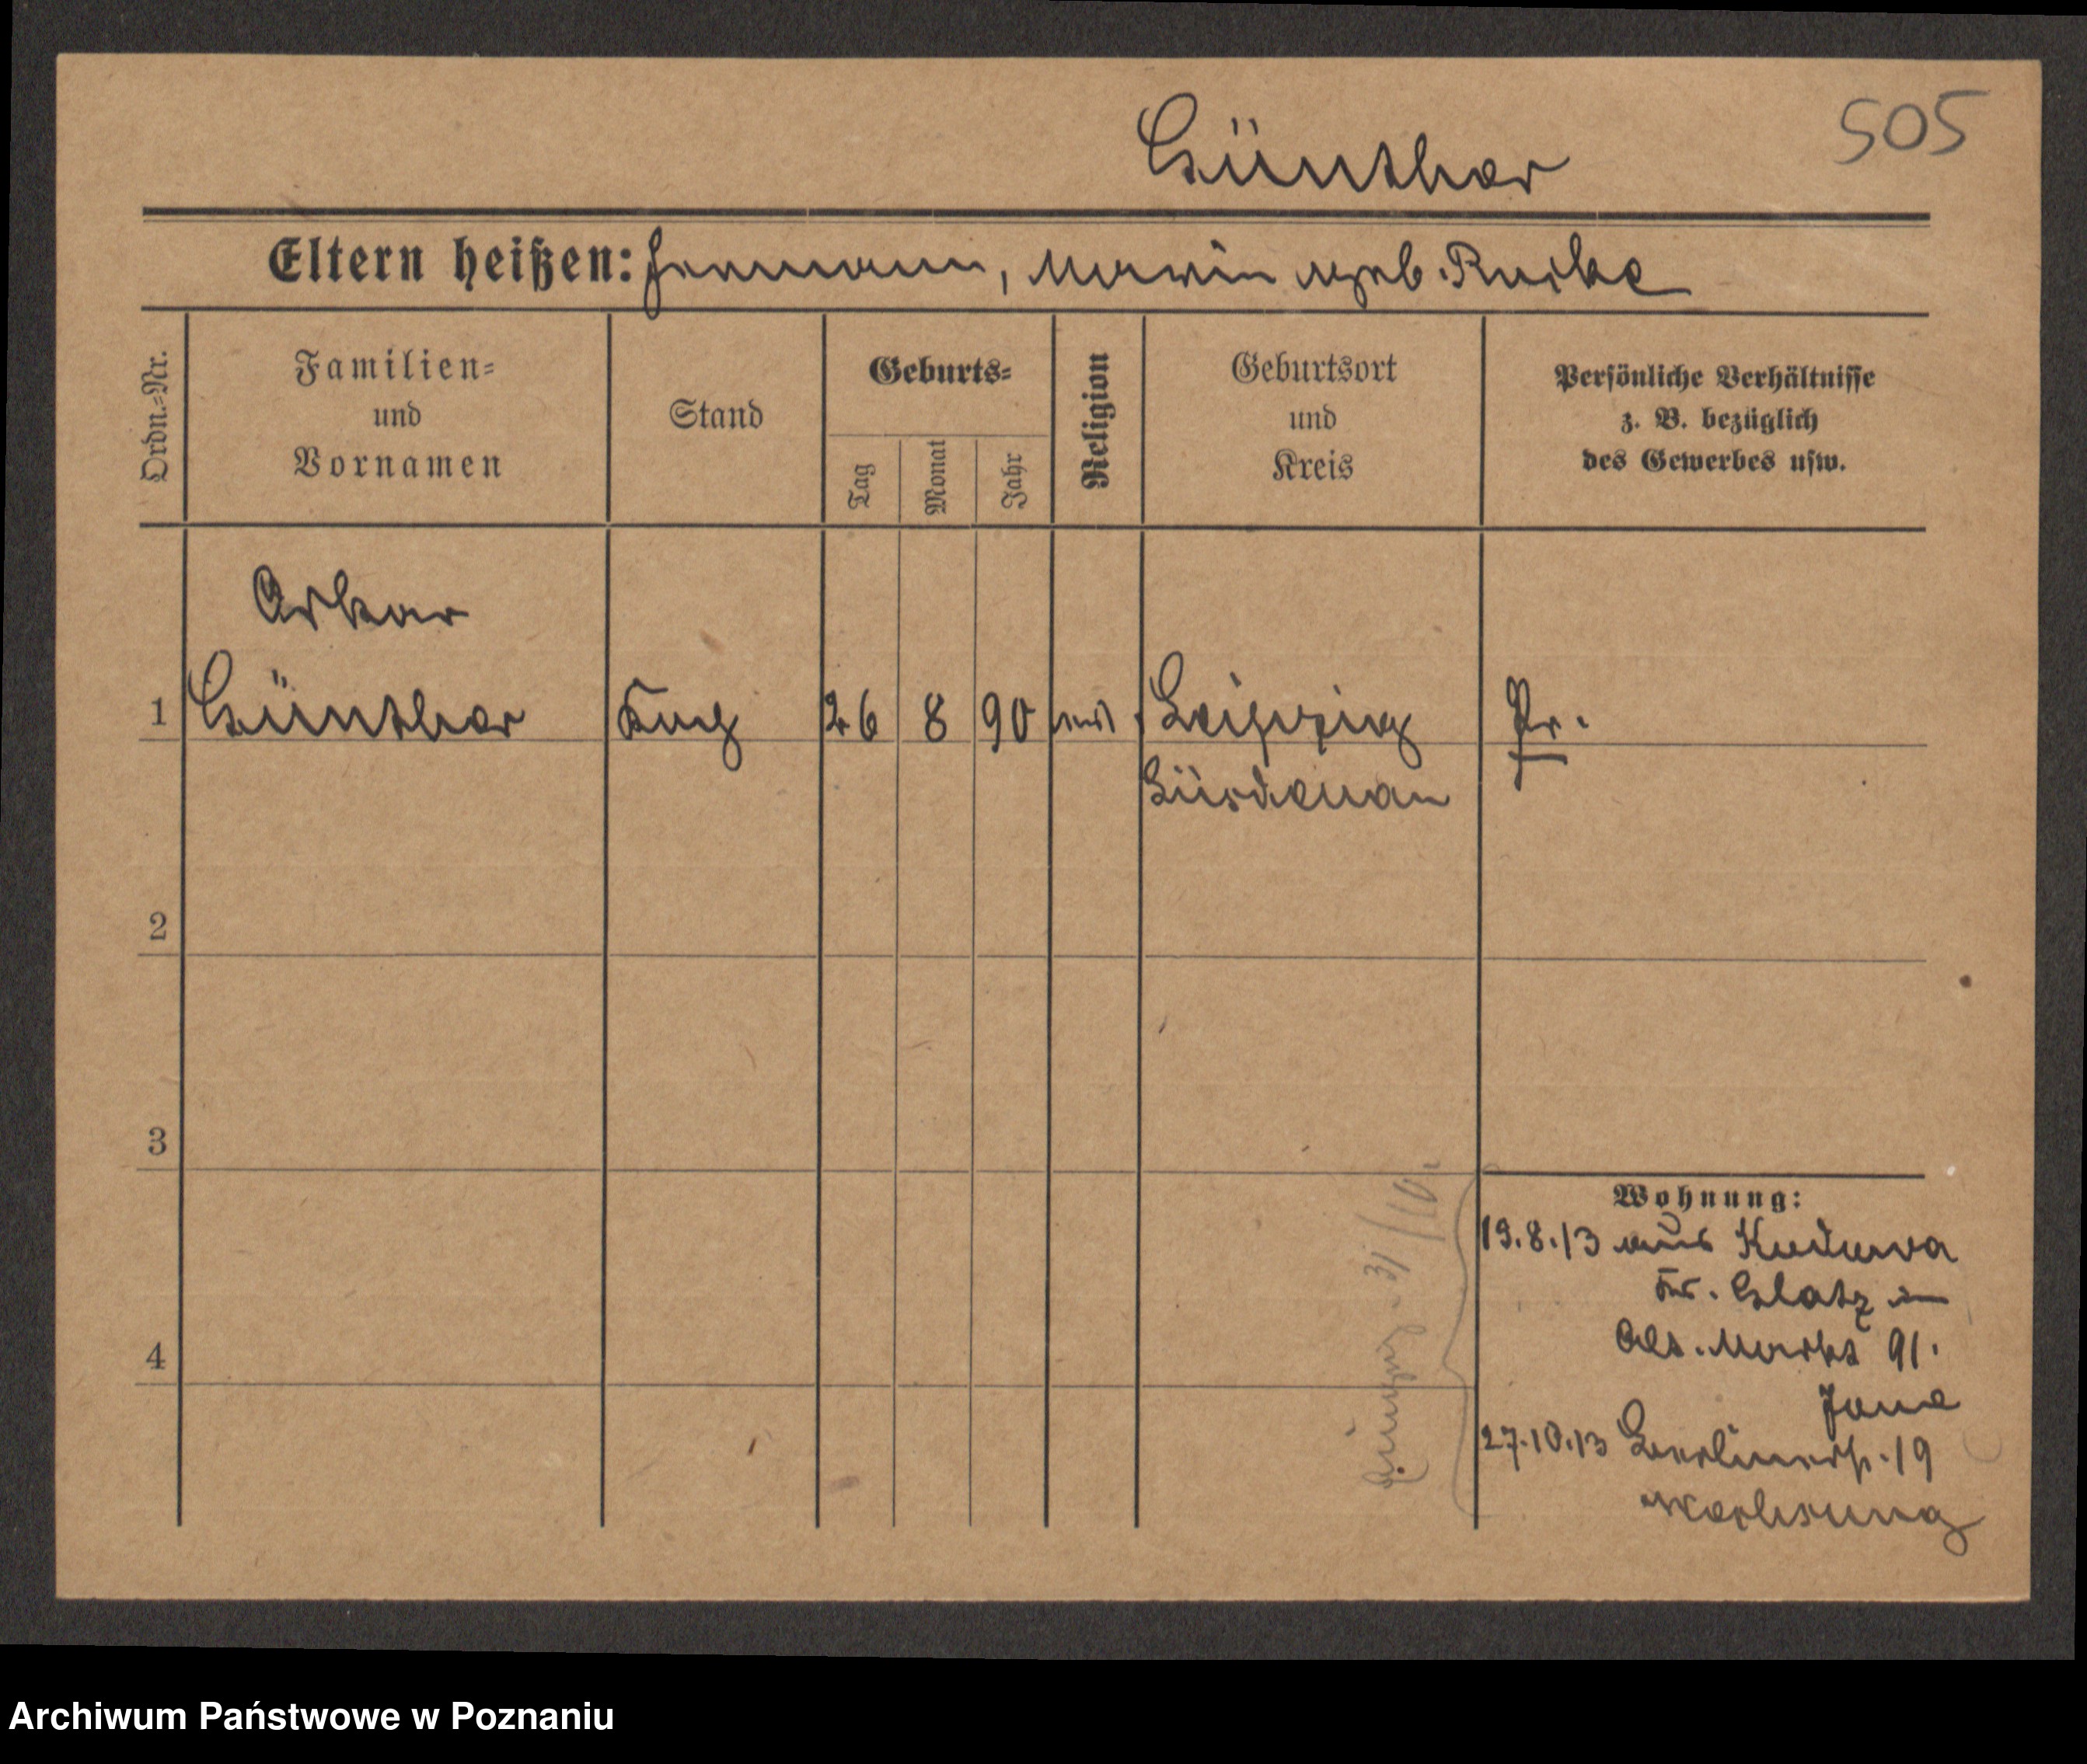 Günther
505
Eltern heißen: Hermann, Maria geb. Racke
Ordn.-Nr.
Familien-
und
Vornamen
Stand
Geburts-
Tag
Monat
Jahr
Religion
Geburtsort
und
Kreis
Persönliche Verhältnisse
z. B. bezüglich
des Gewerbes usw.
Oskar
1 Günther 26 8 90 Leipzig Pr.
Lindenau
2
3
4
Wohnung:
19.8.13 aus Kudowa
Kr. Glatz in
Alt. Markt 91.
27.10.13 Berlinerstr. 19
Archiwum Państwowe w Poznaniu